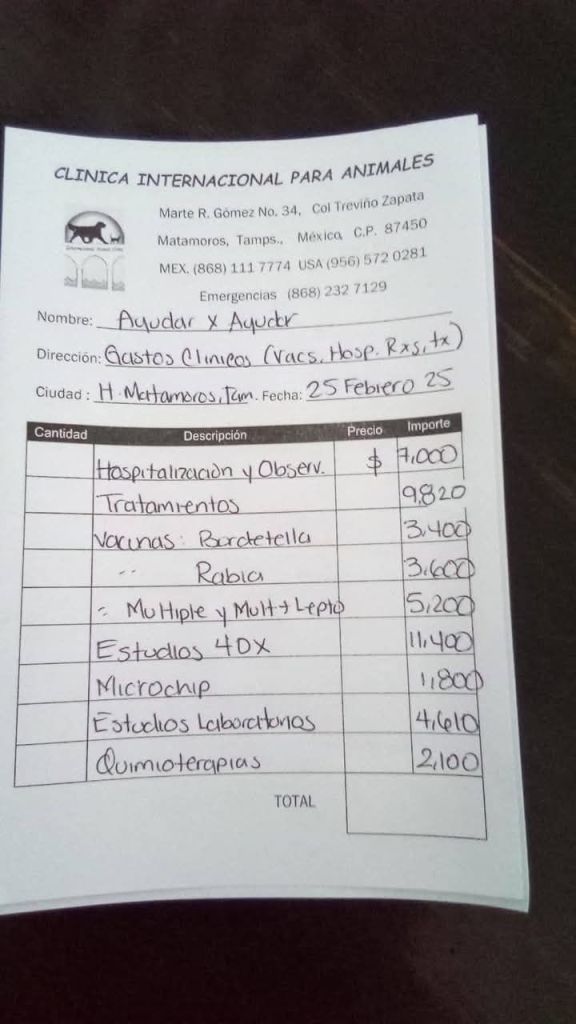 CLINICA INTERNACIONAL PARA ANIMALES
Marte R. Gómez No. 34, Col Treviño Zapata
Matamoros, Tamps., México, C.P. 87450
MEX. (868) 111 7774 USA (956) 572 0281
Emergencias (868) 232 7129
Nombre: Ayudar x Ayudar
Dirección: Gastos Clinicos (Vacs, Hosp. Rxs, tx)
Ciudad: H. Matamoros, Tam. Fecha: 25 Febrero 25
Cantidad Descripción Precio Importe
Hospitalización y Observ. $ 7,000
Tratamientos 9,820
Vacunas: Bordetella 3,400
" Rabia 3,600
" Multiple y Mult + Lepto 5,200
Estudios 4DX 11,400
Microchip 1,800
Estudios Laboratorios 4,610
Quimioterapias 2,100
TOTAL